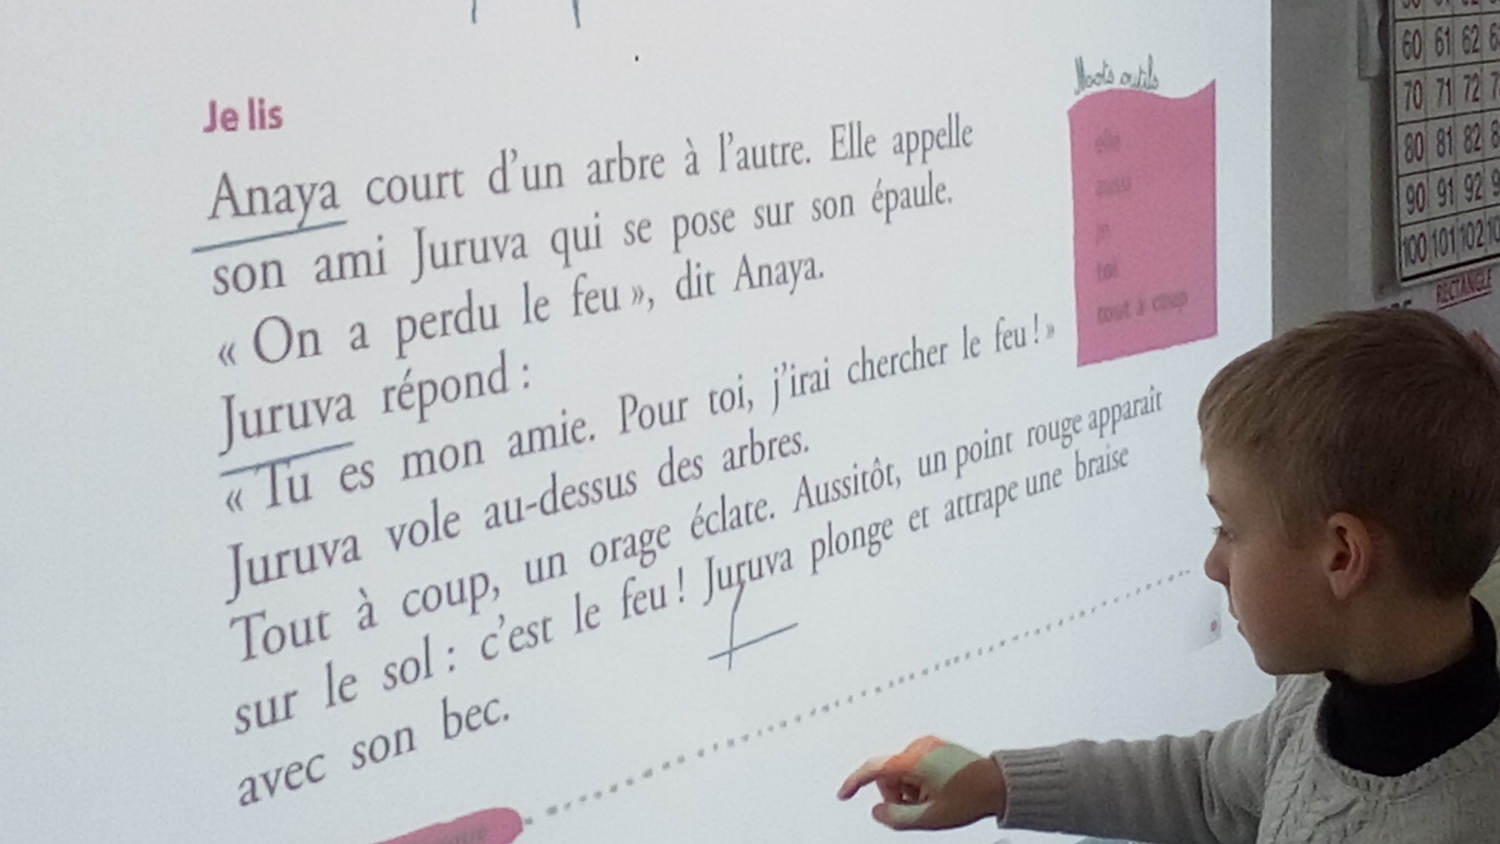 Je lis
Anaya court d'un arbre à l'autre. Elle appelle
son ami Juruva qui se pose sur son épaule.
« On a perdu le feu », dit Anaya.
Juruva répond :
« Tu es mon amie. Pour toi, j'irai chercher le feu ! »
Juruva vole au-dessus des arbres.
Tout à coup, un orage éclate. Aussitôt, un point rouge apparaît
sur le sol : c'est le feu ! Juruva plonge et attrape une braise
avec son bec.
Moots outils
elle
aussi
je
toi
tout à coup
60 61 62
70 71 72
80 81 82
90 91 92
100 101 102
RECTANGLE